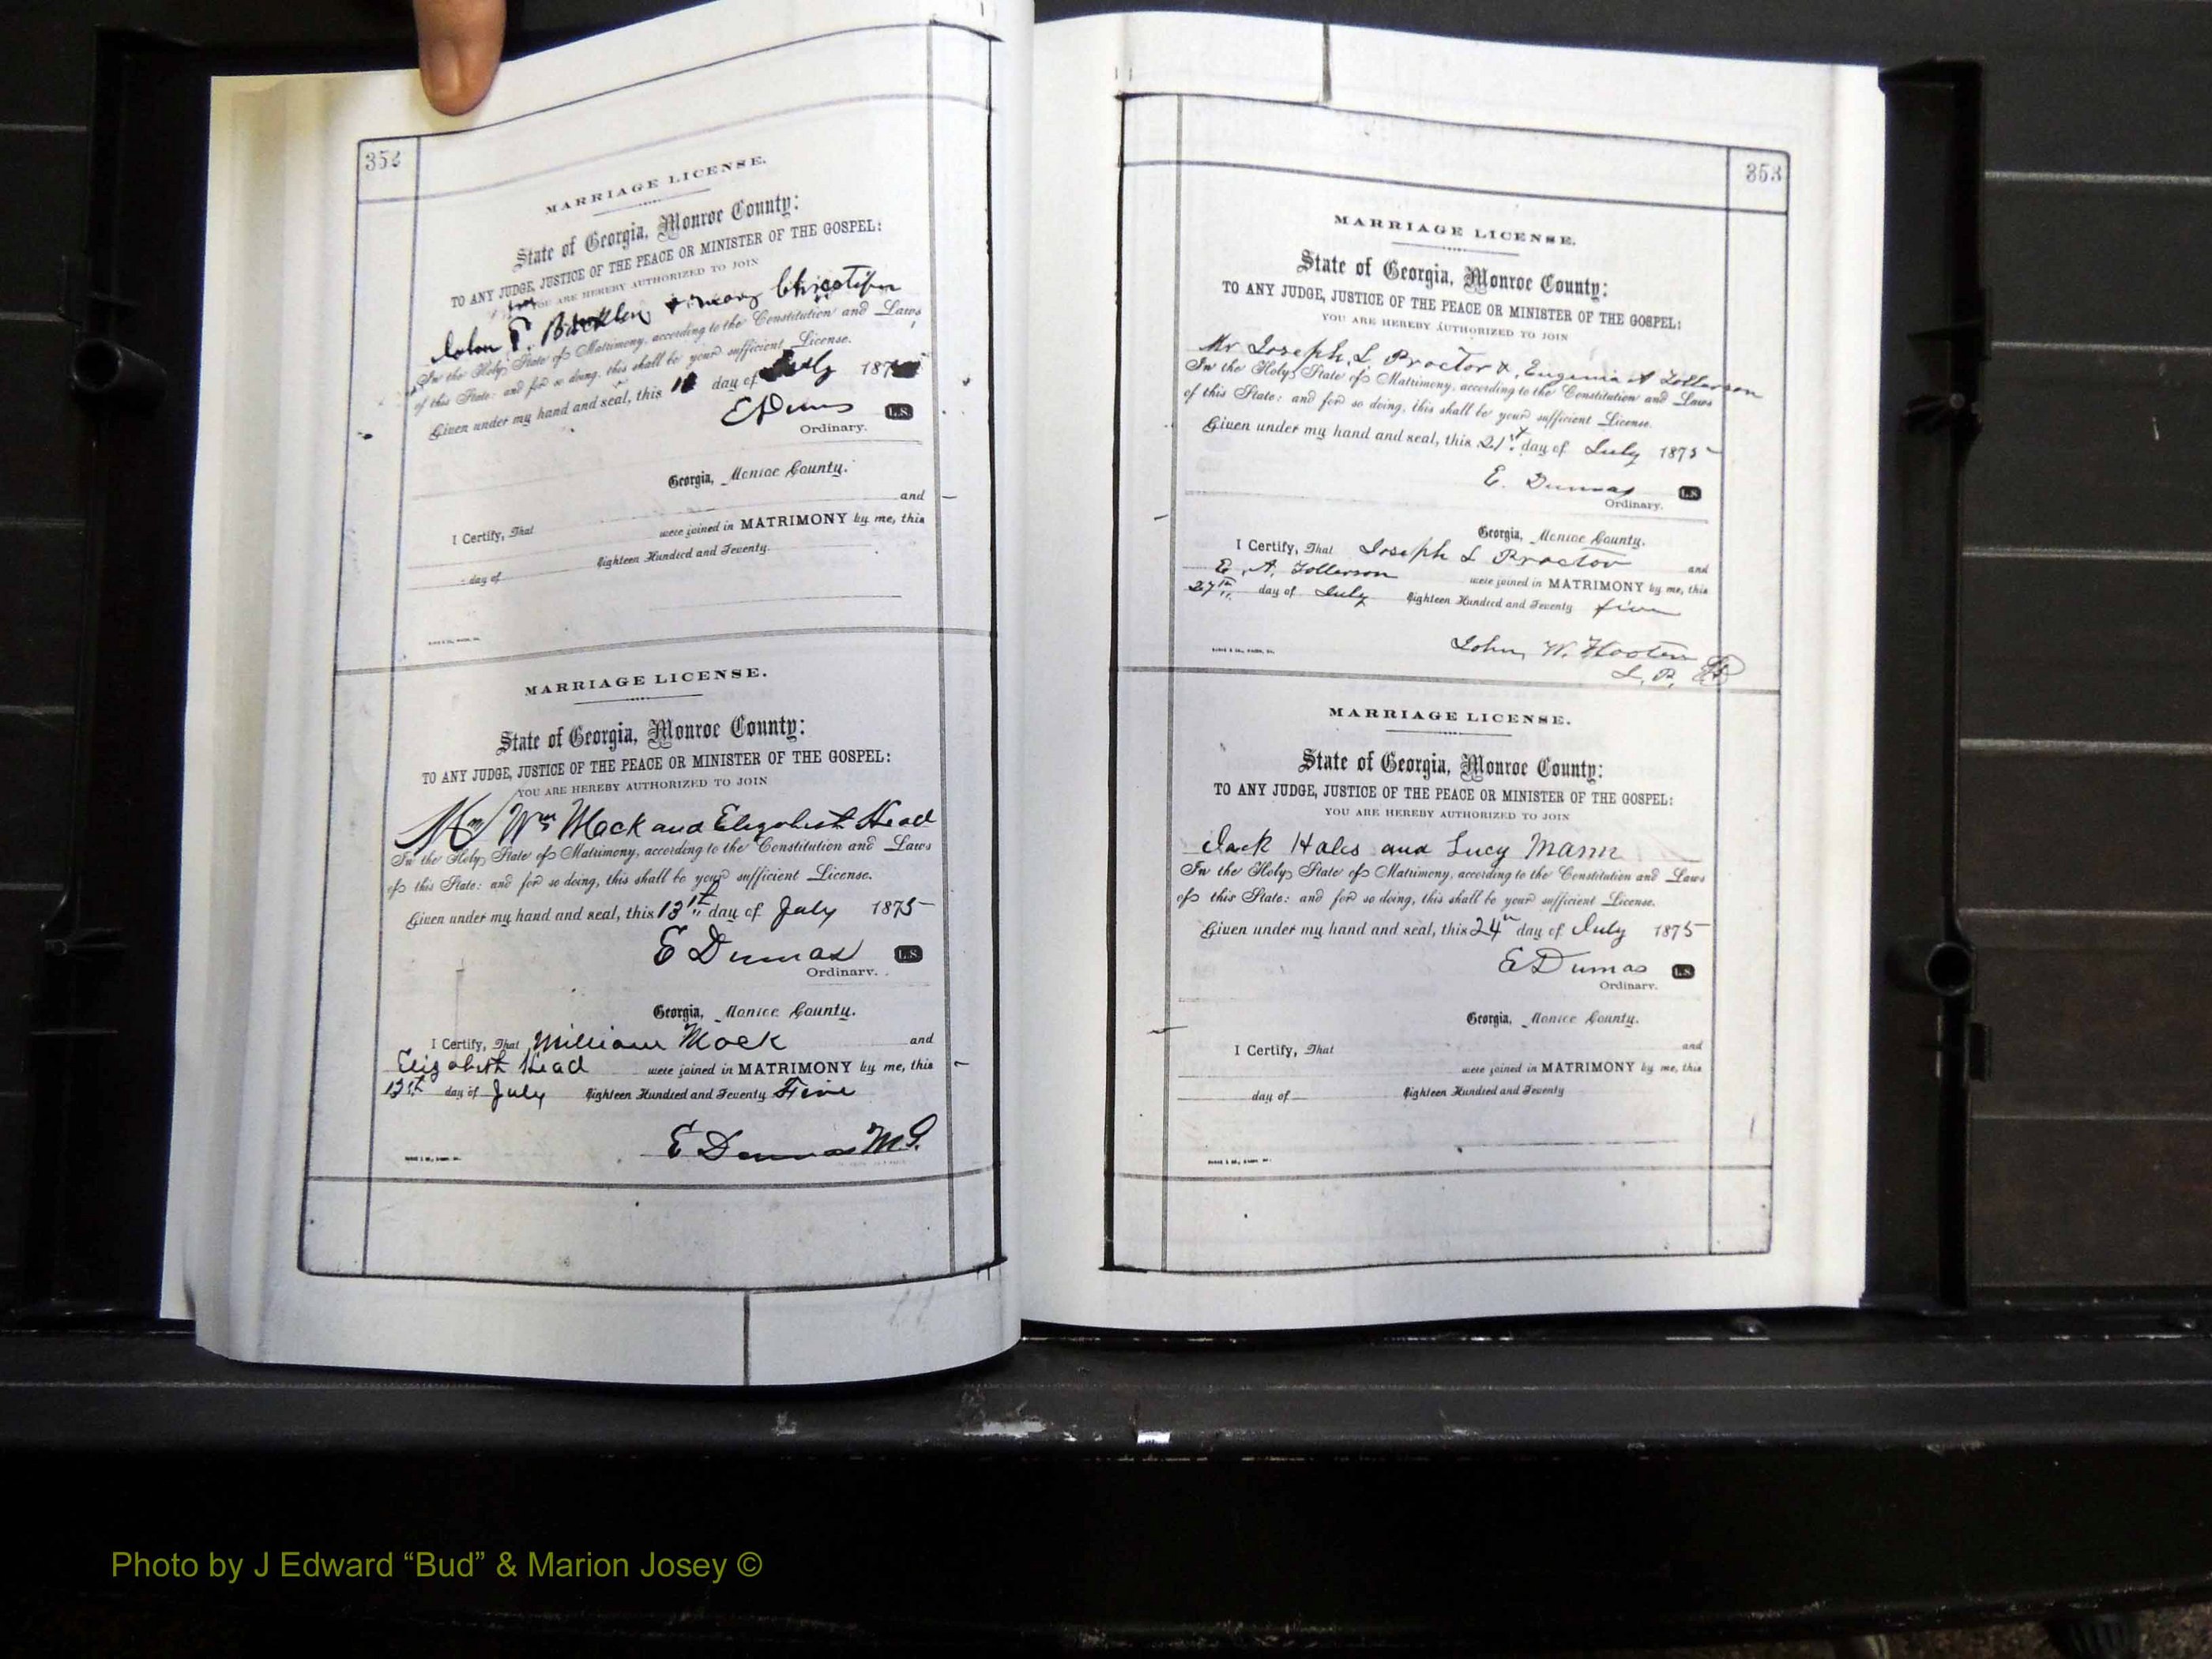 352
MARRIAGE LICENSE.
State of Georgia, Monroe County:
TO ANY JUDGE, JUSTICE OF THE PEACE OR MINISTER OF THE GOSPEL:
YOU ARE HEREBY AUTHORIZED TO JOIN
John
In the Holy State of Matrimony, according to the Constitution and Laws
of this State: and for so doing, this shall be your sufficient License.
Given under my hand and seal, this day of July 187
E Dumas L.S.
Ordinary.
Georgia, Monroe County.
and
I Certify, That were joined in MATRIMONY by me, this
day of Eighteen Hundred and Seventy.
MARRIAGE LICENSE.
State of Georgia, Monroe County:
TO ANY JUDGE, JUSTICE OF THE PEACE OR MINISTER OF THE GOSPEL:
YOU ARE HEREBY AUTHORIZED TO JOIN
Wm Mock and Elizabeth Head
In the Holy State of Matrimony, according to the Constitution and Laws
of this State: and for so doing, this shall be your sufficient License.
Given under my hand and seal, this 13th day of July 1875
E Dumas L.S.
Ordinary.
Georgia, Monroe County.
I Certify, That William Mock and
Elizabeth Head were joined in MATRIMONY by me, this
13th day of July Eighteen Hundred and Seventy Five
E Dumas M.G.
353
MARRIAGE LICENSE.
State of Georgia, Monroe County:
TO ANY JUDGE, JUSTICE OF THE PEACE OR MINISTER OF THE GOSPEL:
YOU ARE HEREBY AUTHORIZED TO JOIN
Mr Joseph L Proctor & Eugenia A Tollerson
In the Holy State of Matrimony, according to the Constitution and Laws
of this State: and for so doing, this shall be your sufficient License.
Given under my hand and seal, this 21st day of July 1875
E. Dumas L.S.
Ordinary.
Georgia, Monroe County.
I Certify, That Joseph L Proctor and
E. A. Tollerson were joined in MATRIMONY by me, this
27th day of July Eighteen Hundred and Seventy five
John W. Hooten
MARRIAGE LICENSE.
State of Georgia, Monroe County:
TO ANY JUDGE, JUSTICE OF THE PEACE OR MINISTER OF THE GOSPEL:
YOU ARE HEREBY AUTHORIZED TO JOIN
Jack Hales and Lucy Mann
In the Holy State of Matrimony, according to the Constitution and Laws
of this State: and for so doing, this shall be your sufficient License.
Given under my hand and seal, this 24th day of July 1875
E Dumas L.S.
Ordinary.
Georgia, Monroe County.
I Certify, That and
were joined in MATRIMONY by me, this
day of Eighteen Hundred and Seventy
Photo by J Edward “Bud” & Marion Josey ©